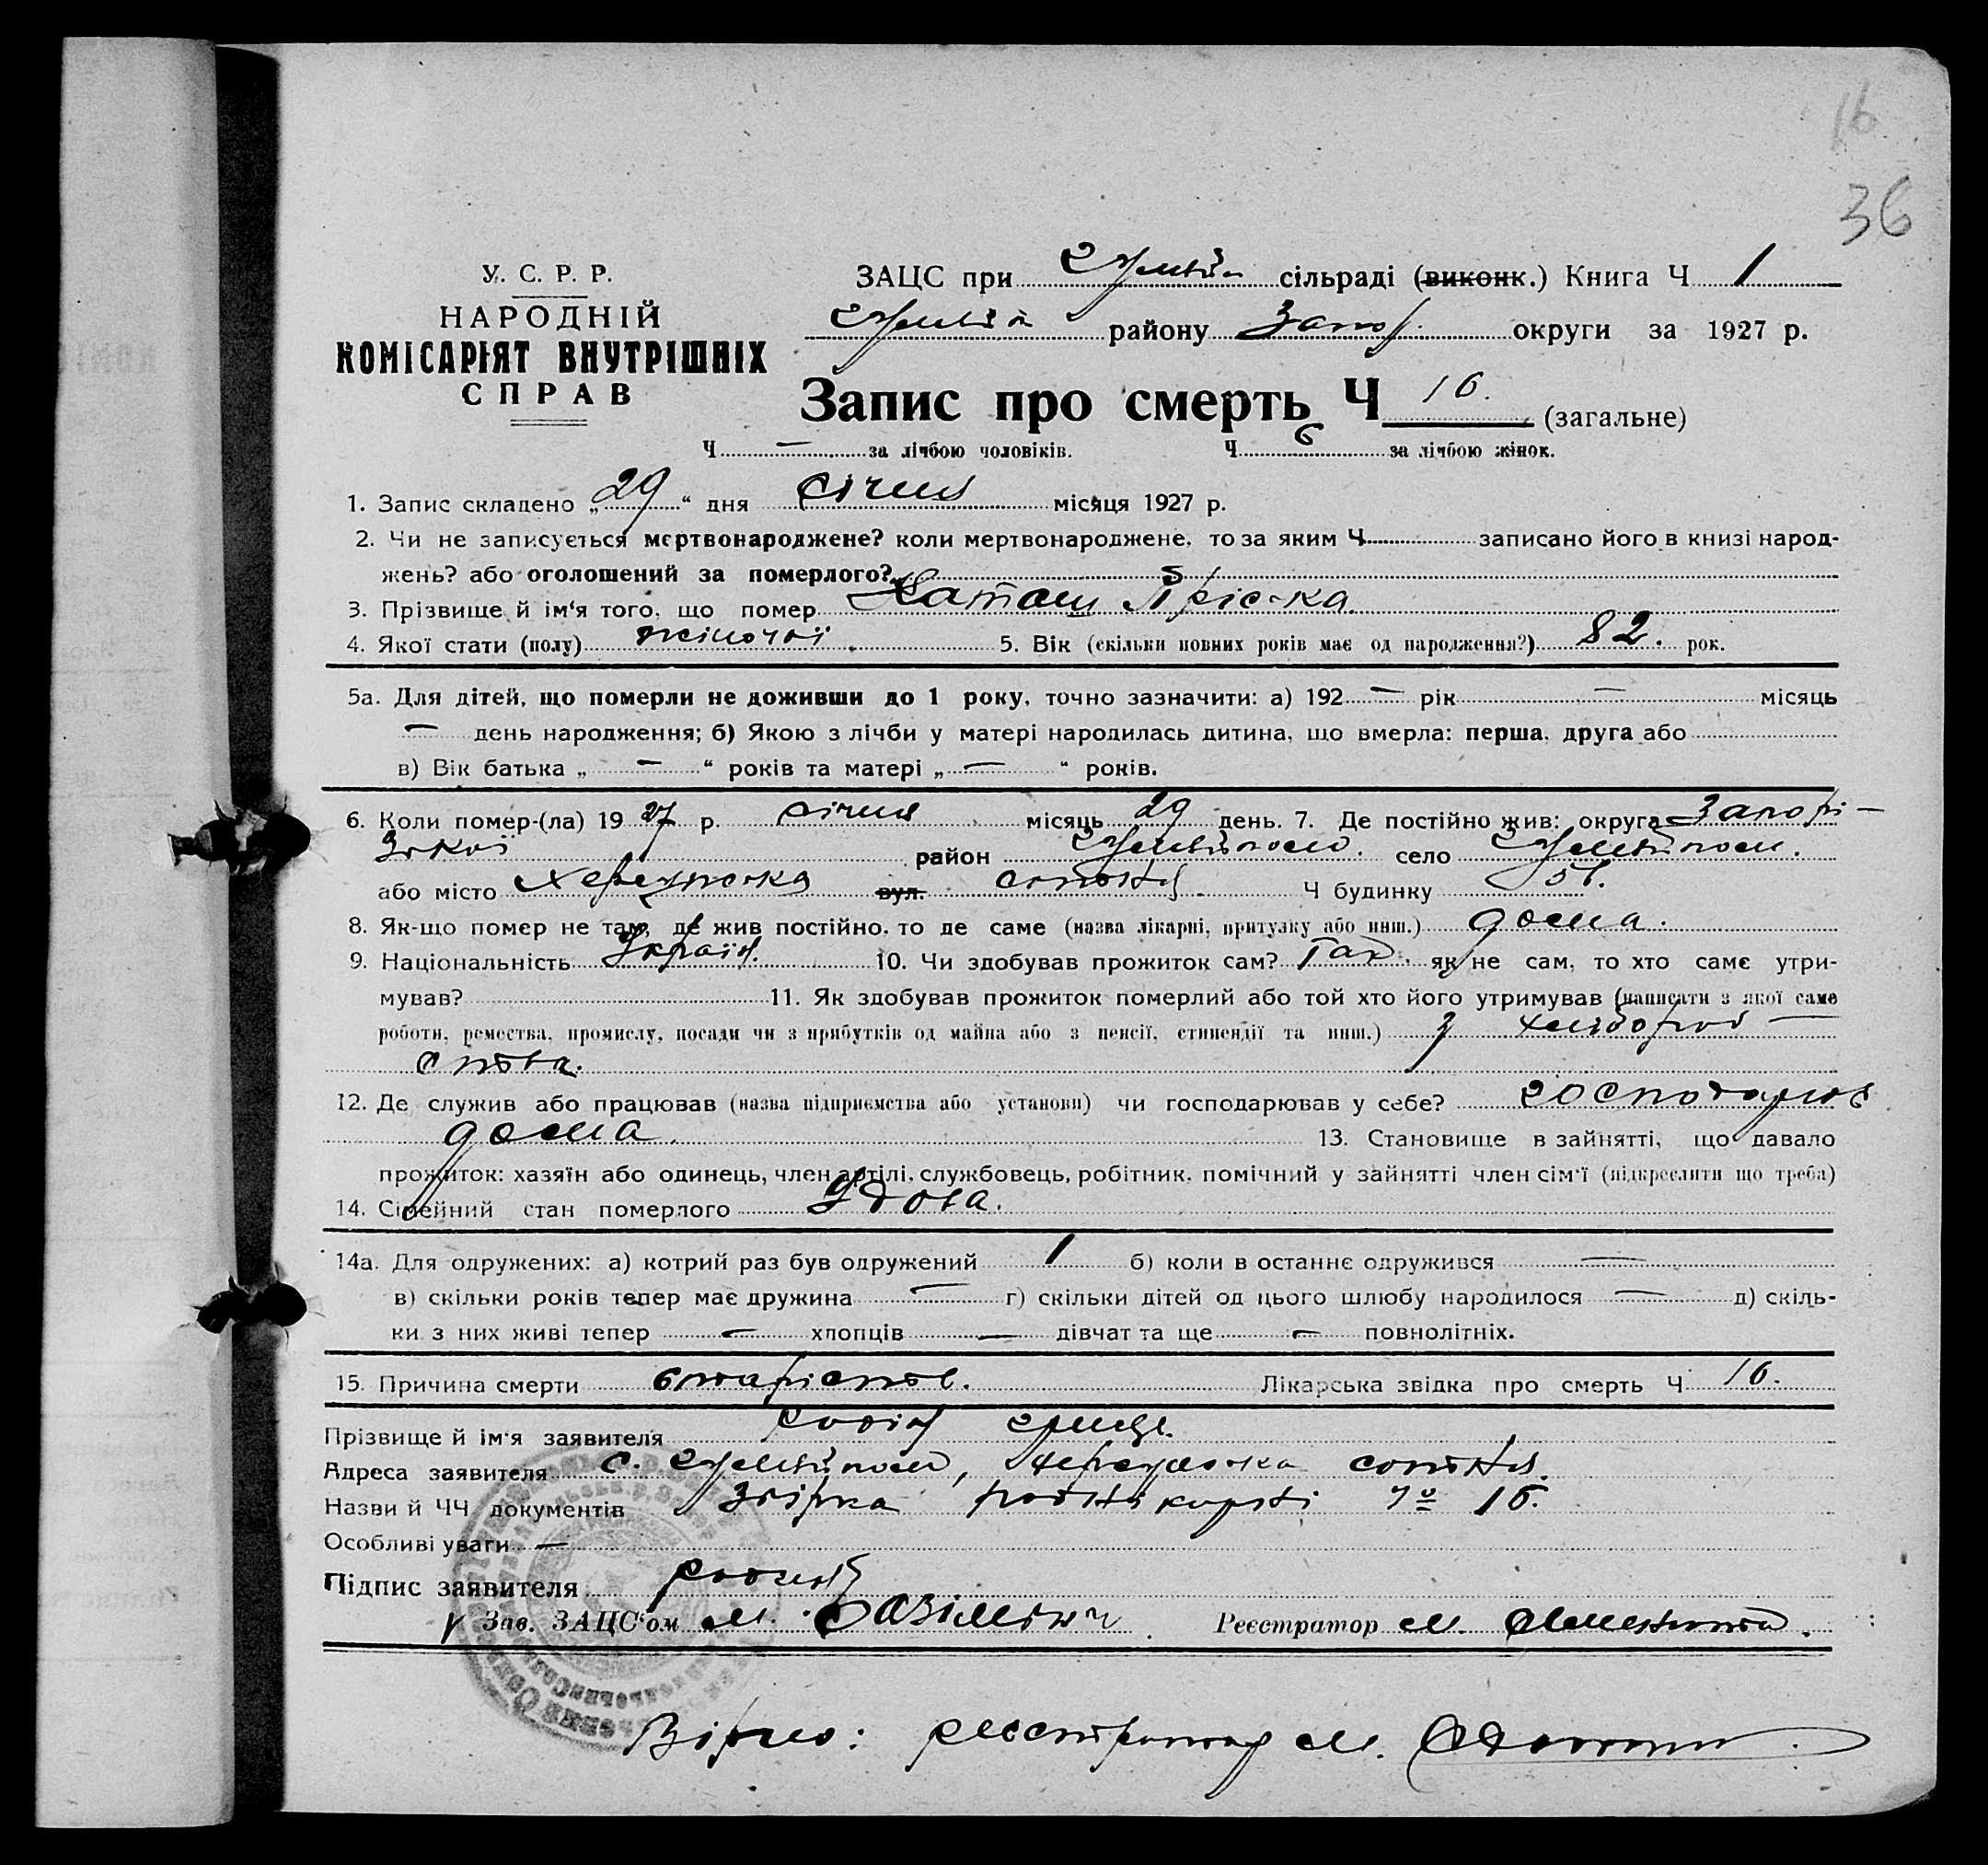 16
36
У. С. Р. Р.
НАРОДНІЙ
КОМІСАРІЯТ ВНУТРІШНІХ
СПРАВ
ЗАЦС при сільраді (виконк.) Книга Ч 1
району Запор. округи за 1927 р.
Запис про смерть Ч 16. (загальне)
Ч — за лічбою чоловіків. Ч 6 за лічбою жінок.
1. Запис складено „ 29 “ дня січня місяця 1927 р.
2. Чи не записується мертвонароджене? коли мертвонароджене, то за яким Ч записано його в книзі народ-
жень? або оголошений за померлого?
3. Прізвище й ім‘я того, що помер Пріська
4. Якої стати (полу) жіночої 5. Вік (скільки повних років має од народження?) 82. рок.
5а. Для дітей, що померли не доживши до 1 року, точно зазначити: а) 192 — рік — місяць
— день народження; б) Якою з лічби у матері народилась дитина, що вмерла: перша, друга або
в) Вік батька „ — “ років та матері „ — “ років.
6. Коли помер-(ла) 19 27 р. січня місяць 29 день. 7. Де постійно жив: округа Запорі-
зької район село
або місто вул. сотня Ч будинку
8. Як-що помер не там, де жив постійно, то де саме (назва лікарні, притулку або инш.) дома.
9. Національність Україн. 10. Чи здобував прожиток сам? Так. як не сам, то хто саме утри-
мував? 11. Як здобував прожиток померлий або той хто його утримував (написати з якої саме
роботи, ремества, промислу, посади чи з прибутків од майна або з пенсії, стипендії та инш.) з хлібороб-
ства.
12. Де служив або працював (назва підприємства або установи) чи господарював у себе? господарюв
дома. 13. Становище в зайнятті, що давало
прожиток: хазяїн або одинець, член артілі, службовець, робітник, помічний у зайнятті член сім‘ї (підкреслити що треба)
14. Сімейний стан померлого удова.
14а. Для одружених: а) котрий раз був одружений 1 б) коли в останнє одружився —
в) скільки років тепер має дружина — г) скільки дітей од цього шлюбу народилося — д) скіль-
ки з них живі тепер — хлопців — дівчат та ще — повнолітніх.
15. Причина смерти старіств. Лікарська звідка про смерть Ч 16.
Прізвище й ім‘я заявителя
Адреса заявителя с. сотня.
Назви й ЧЧ документів
Особливі уваги —
Підпис заявителя
Зав. ЗАЦС‘ом М. Реєстратор М.
Вірно: реєстратор М.